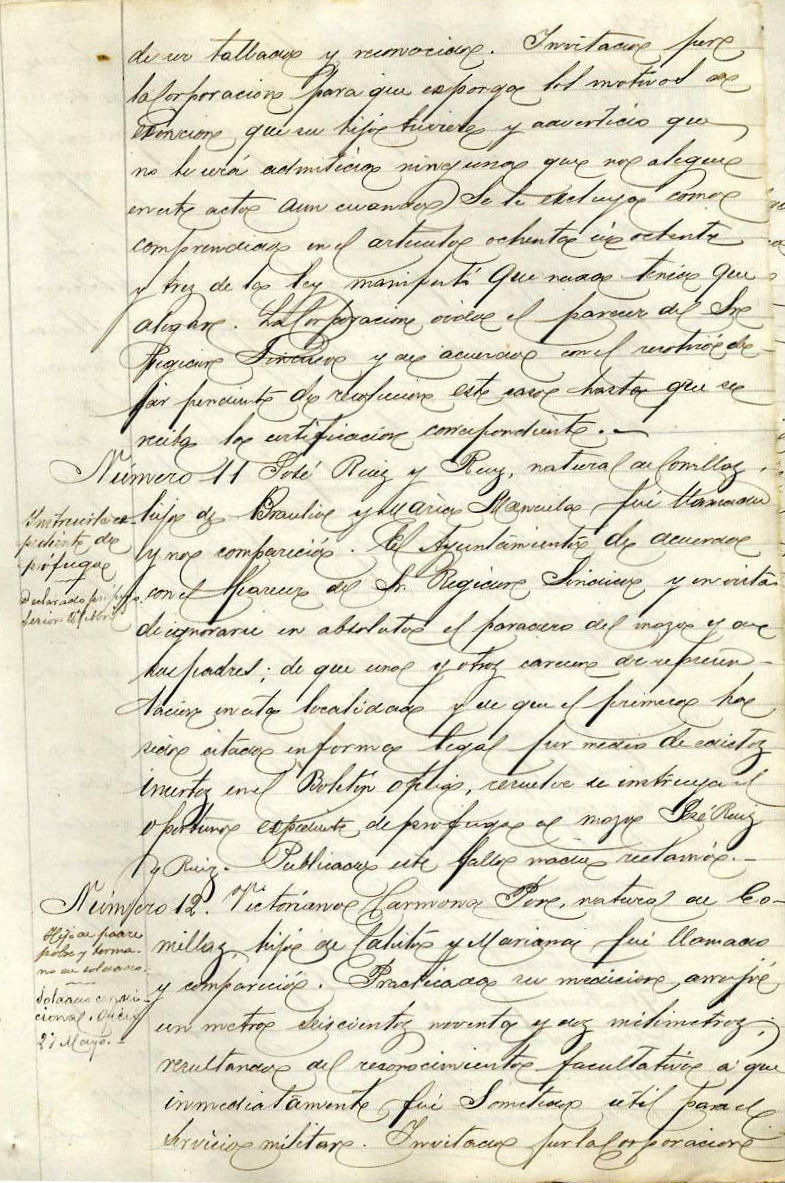 de ser tallado y reconocido. Invitado por
la Corporacion para que esponga los motivos de
esencion que su hijo tuviere y advertido que
no le será admitida ninguna que no alegue
en este acto aun cuando se le excluya como
comprendido en el articulo ochenta ú ochenta
y tres de la ley manifestó que nada tenia que
alegar. La Corporacion oido el parecer del Sr
Regidor Sindico y de acuerdo con el resolvió de-
jar pendiente de resolucion este caso hasta que se
reciba la certificacion correspondiente.
Número 11 José Ruiz y Ruiz, natural de Comillas,
hijo de Braulio y María Manuela fué llamado
y no compareció. El Ayuntamiento de acuerdo
con el parecer del Sr. Regidor Sindico y en vista
de ignorarse en absoluto el paradero del mozo y de
sus padres; de que unos y otros carecen de represen-
tacion en esta localidad y de que el primero ha
sido citado en forma legal por medio de edictos
insertos en el Boletín oficial, resuelve se instruya el
oportuno espediente de profugo al mozo José Ruiz
y Ruiz. Publicado este fallo nadie reclamó.
Instruirle es-
pediente de
prófugo
Declarado prófugo
Sesion Abril
Número 12. Victoriano Carmona Pone, natural de Co-
millas, hijo de Calisto y Mariana fué llamado
y compareció. Practicada su medicion arrojó
un metro seiscientos noventa y dos milimetros;
resultando del reconocimiento facultativo á que
inmediatamente fué sometido util para el
servicio militar. Invitado por la Corporacion
Hijo de padre
pobre y herma-
no de soldado.
Soldado condi-
cional. Oficio
27 Mayo.